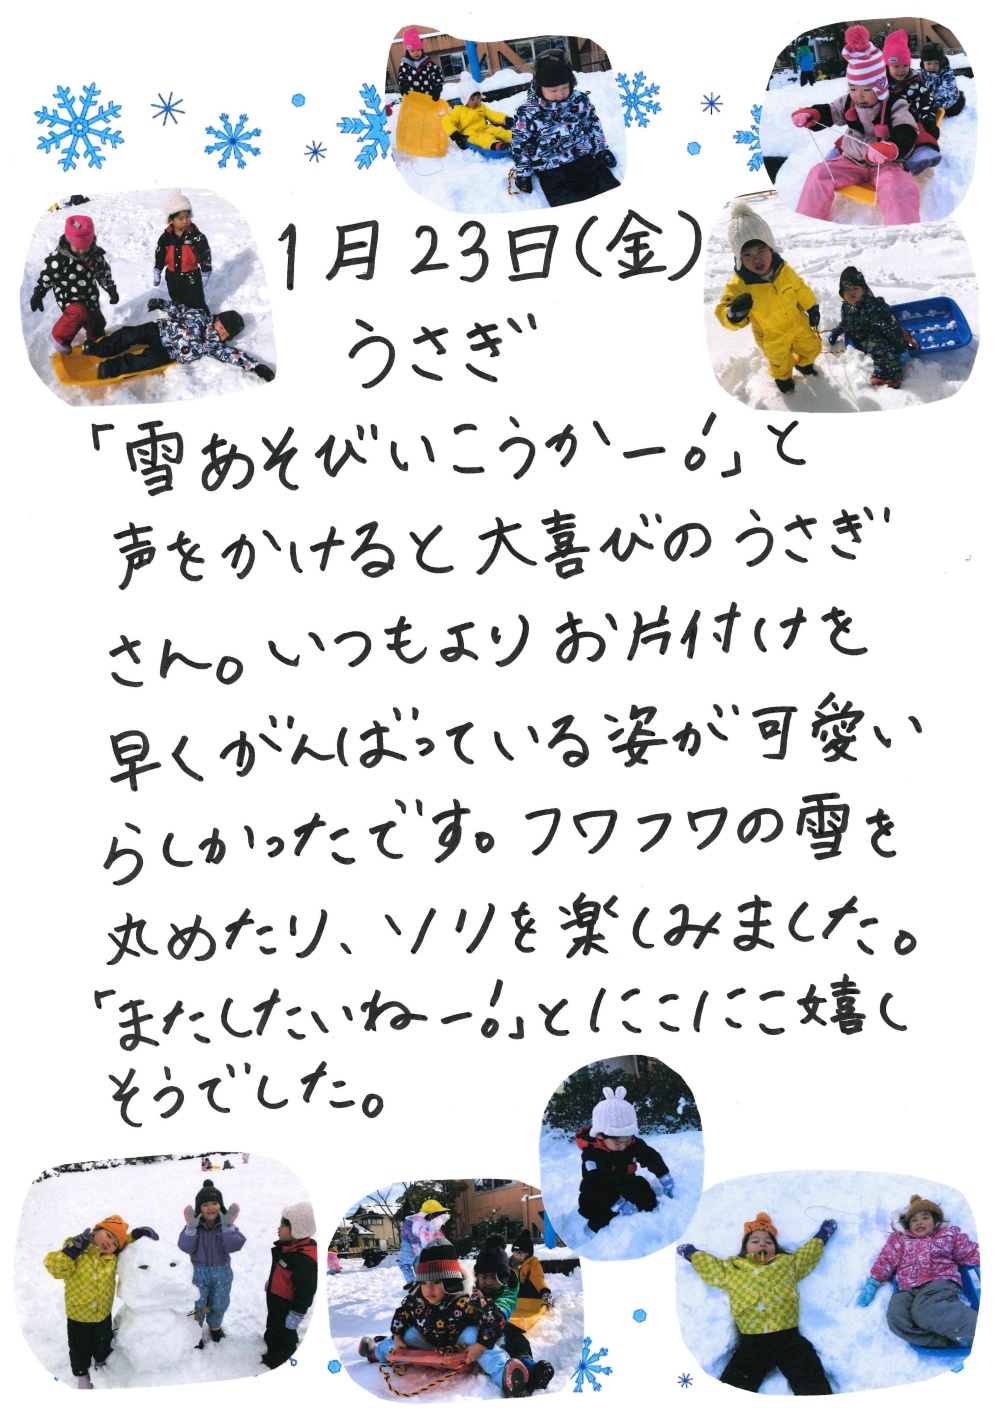 1月23日(金)
うさぎ
「雪あそびいこうかー!」と
声をかけると大喜びのうさぎ
さん。いつもよりお片付けを
早くがんばっている姿が可愛い
らしかったです。フワフワの雪を
丸めたり、ソリを楽しみました。
「またしたいねー!」とにこにこ嬉し
そうでした。